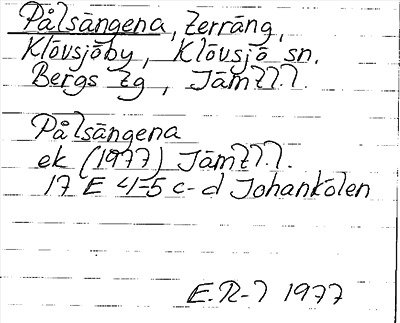 Pålsängena, terräng,
Klövsjöby, Klövsjö sn.
Bergs tg, Jämtl.
Pålsängena
ek (1977) Jämtl.
17 E 4-5 c-d Johankölen
E.R-l 1977